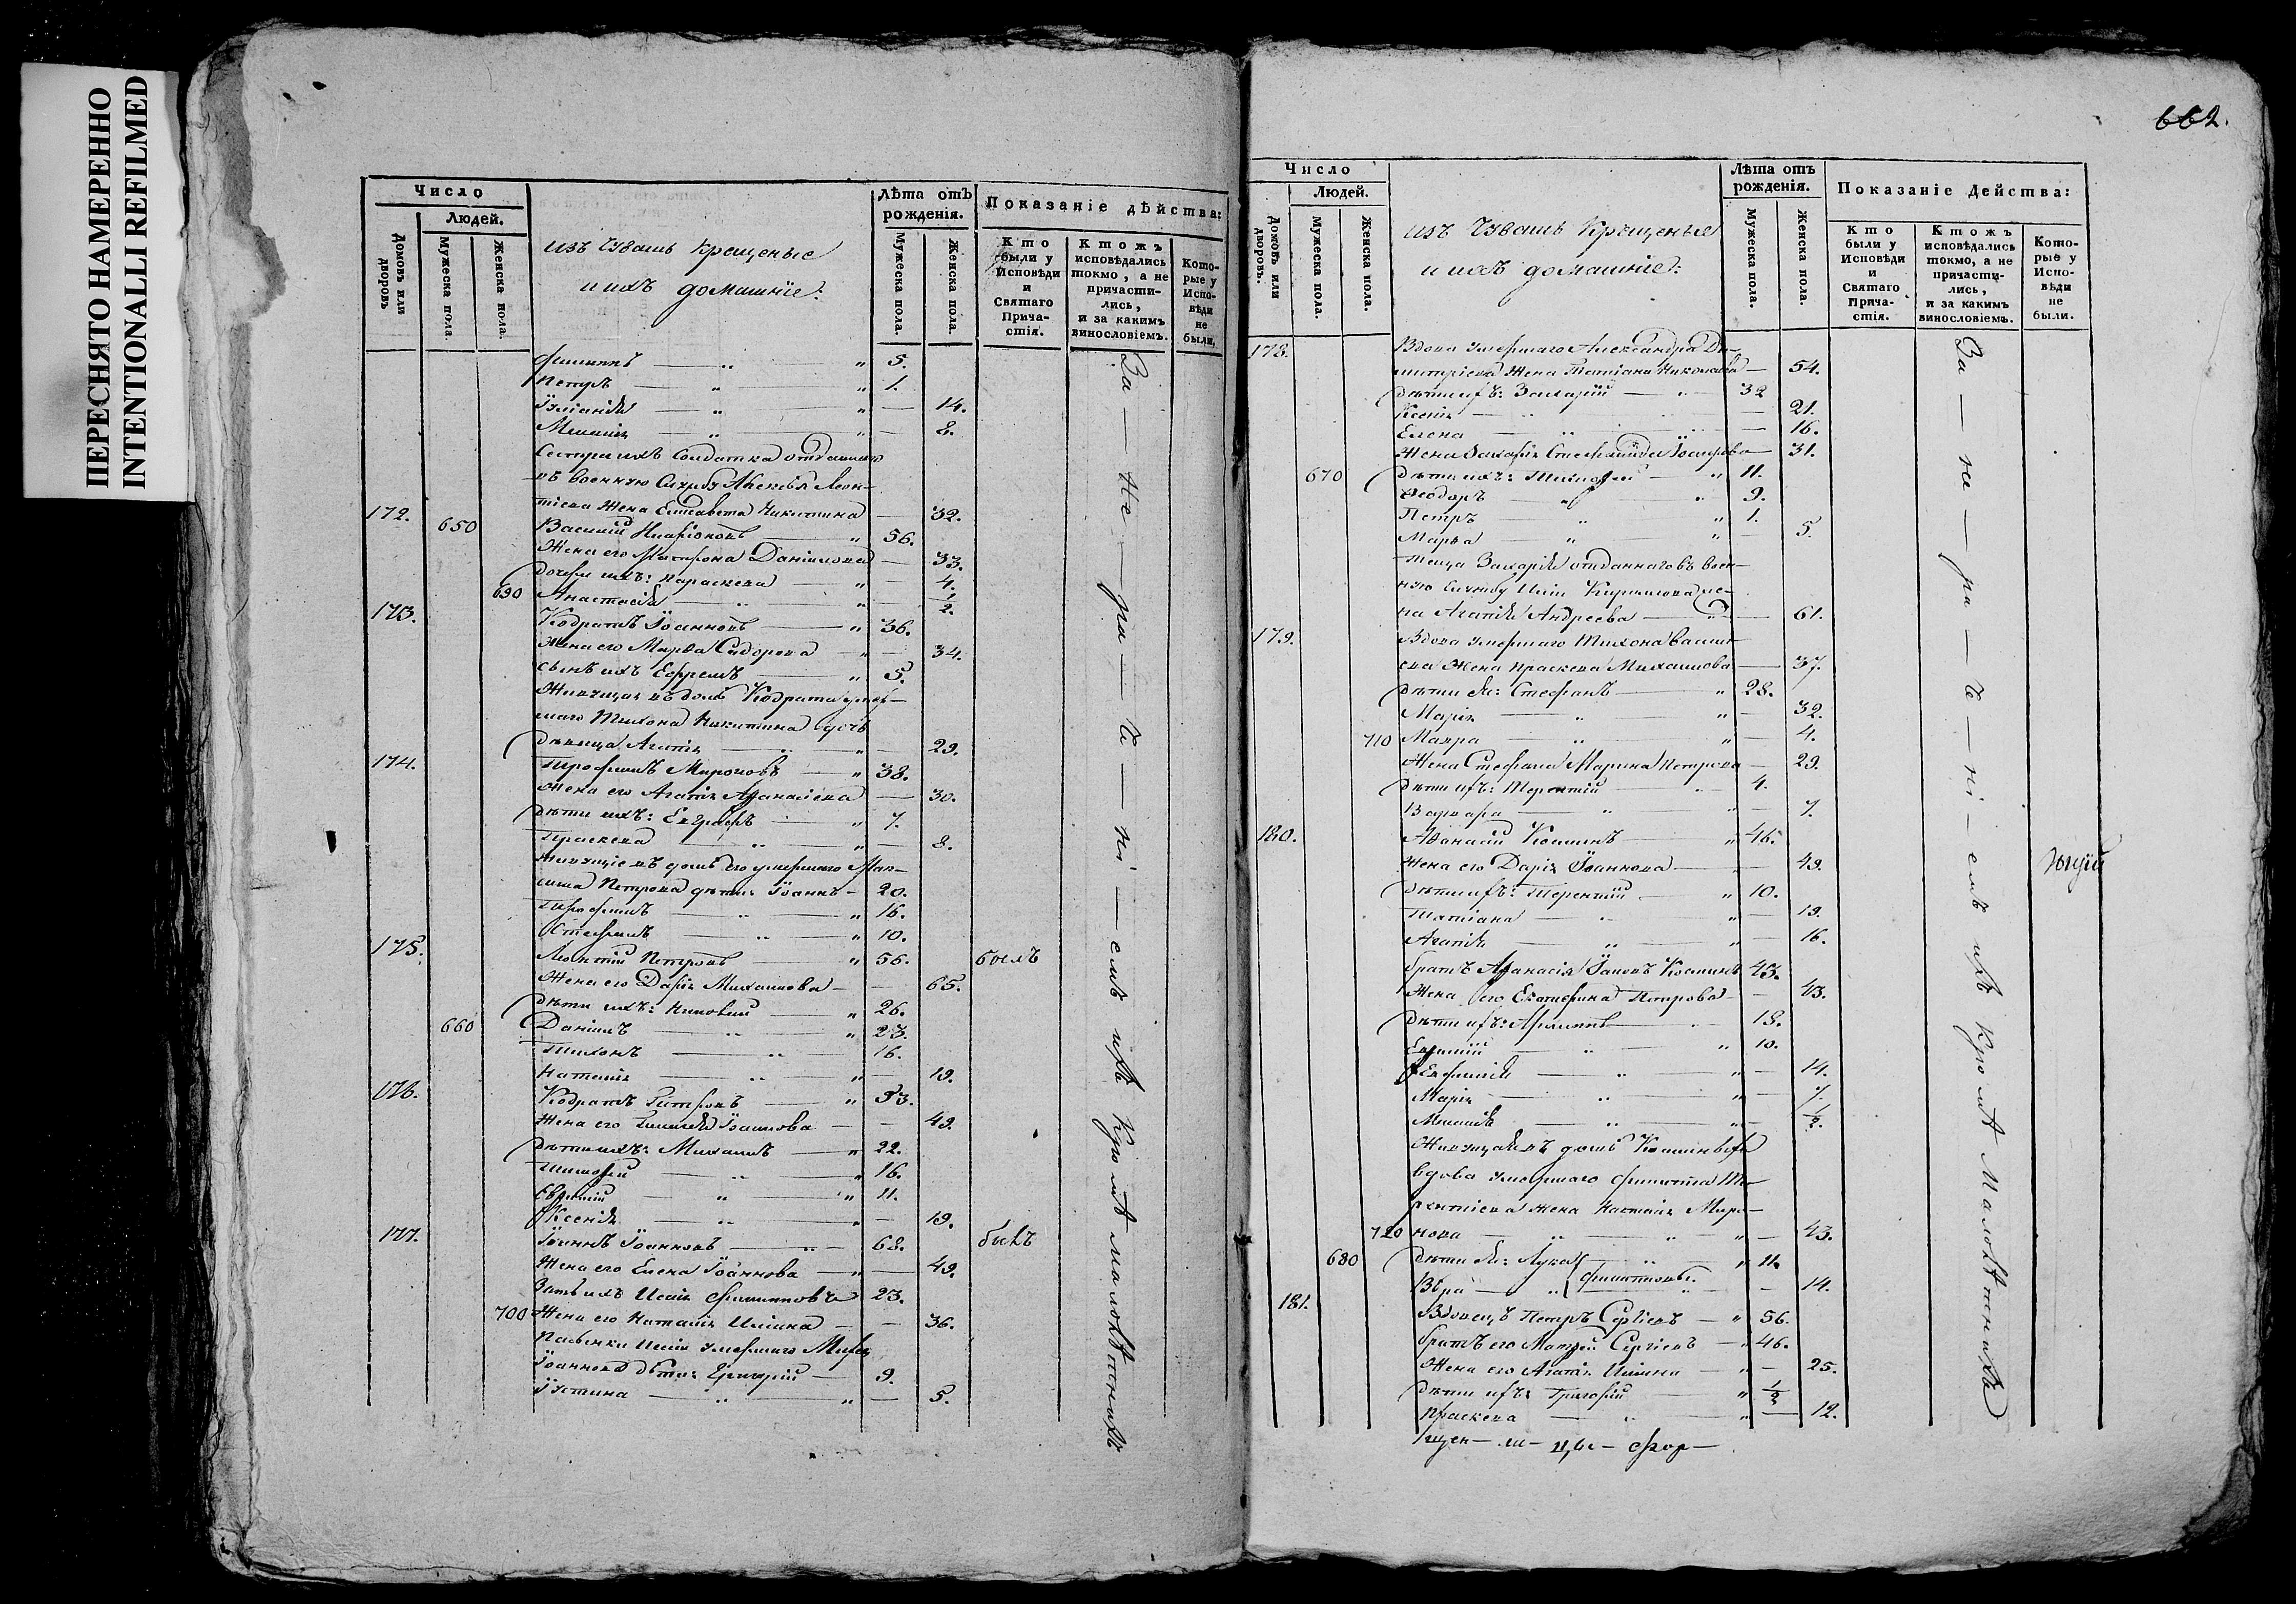 ПЕРЕСНЯТО НАМЕРЕННО
INTENTIONALLI REFILMED
Число
Людей.
Домовъ или дворовъ
Мужеска пола.
Женска пола.
изъ Чувашъ крещеные
и ихъ домашніе:
Лѣта отъ рожденія.
Мужеска пола.
Женска пола.
Показаніе дѣйства:
Кто были у Исповѣди и Святаго Прича-стія.
Ктожъ исповѣдались токмо, а не причасти-лись, и за какимъ винословіемъ.
Кото-рые у Испо-вѣди не были.
Филиппъ — „ „ 5.
Петръ — „ „ 1.
Іуліанія — „ „ — 14.
Меланія — „ „ — 8.
Сестра ихъ Солдатка отданнаго
въ военную Службу Алексѣя Леон-
тіева Жена Елисавета Никитина — 32.
172. 650 Василій Иларіоновъ — „ 56.
Жена его Матрона Даніилова — 33.
Дочери ихъ: Параскева — „ — 4.
690 Анастасія — „ „ — 1/2.
173. Кодратъ Іоанновъ — „ 36.
Жена его Марѳа Сидорова — „ — 34.
сынъ ихъ Ефремъ — „ 5.
Живущая въ домѣ Кодрата умер-
шаго Тихона Никитина дочь
Дѣвица Агапія — „ „ — 29.
174. Трофимъ Мироновъ — „ 38.
Жена его Агапія Афанасіева — 30.
Дѣти ихъ: Евграфъ — „ 7.
Праскева — „ „ — 8.
Живущіе въ домѣ его умершаго
Петрова дѣти: Іоаннъ — 20.
Трофимъ — „ „ 16.
Стефанъ — „ „ 10.
175. Леонтій Петровъ — „ 56. былъ
Жена его Дарія Михаилова — — 65.
Дѣти ихъ: — „ 26.
660 Даніилъ — „ „ 23.
Тихонъ — „ 16.
Наталія — „ „ — 19.
176. Кодратъ Петровъ — „ 53.
Жена его Іоаннова — — 49.
Дѣти ихъ: Михаилъ — „ 22.
Тимофей — „ „ 16.
Евфимій — „ „ 11.
Ксенія — „ „ — 19.
177. Іоаннъ Іоанновъ — „ 68. былъ
Жена его Елена Іоаннова — „ — 49.
Зять ихъ Исаія Филипповъ 23.
700 Жена его Наталія — — 36.
Пасынки Исаіи умершаго
Іоаннова дѣти: Григорій — 9.
Іустина — „ „ — 5.
За — не — ра — че — ні — емъ ихъ кромѣ малолѣтнихъ
662.
Число
Людей.
Домовъ или дворовъ.
Мужеска пола.
Женска пола.
изъ Чувашъ Крещеные
и ихъ домашніе:
Лѣта отъ рожденія.
Мужеска пола.
Женска пола.
Показаніе Действа:
Кто были у Исповѣди и Святаго Прича-стія.
Ктожъ исповѣдались токмо, а не причасти-лись, и за какимъ винословіемъ.
Кото-рые у Испо-вѣди не были.
178. Вдова умершаго Александра Ди-
митріева Жена Татіана Николаева — 54.
Дѣти ихъ: Захарій — „ 32
Ксенія — „ — 21.
Елена — „ — 16.
Жена Захарія Стефанида Іосифова — 31.
670 Дѣти ихъ: Тимофей — „ 11.
Ѳеодоръ — „ „ 9.
Петръ — „ „ 1.
Марѳа — „ „ — 5.
Теща Захарія отданнаго въ воен-
ную службу Кирилова же-
на Агапія Андреева — „ — 61.
179. Вдова умершаго Тихона Васил-
ева Жена Праскева Михаилова — 37.
Дѣти ея: Стефанъ — „ 28.
Марія — „ „ — 32.
710 Мавра — „ „ — 4.
Жена Стефана Марина Петрова — 29.
Дѣти ихъ: Терентій — „ 4.
Варвара — „ „ — 7.
180. Афанасій Космичъ — „ 46.
Жена его Дарія Іоаннова — — 49.
Дѣти ихъ: Терентій — „ 10.
Татіана — „ „ — 19.
Агапія — „ „ — 16.
братъ Афанасія 43.
Жена его Екатерина Петрова — — 43.
Дѣти ихъ: Филиппъ — „ 18.
Евфимій — „ „ 10.
Евфимія — „ „ — 14.
Марія — „ „ — 7.
Меланія — „ „ — 1/2.
Живущая въ домѣ
вдова умершаго Филиппа Те-
рентіева жена Наталія Миро-
720 нова — „ „ — 43.
680 Дѣти ея: Лука — „ „ 11.
Вѣра — „ Филипповы. „ — 14.
181. Вдовецъ Петръ Сергіевъ — „ 56.
братъ его Матѳей Сергіевъ — „ 46.
Жена его Агапія Ильина — „ — 25.
Дѣти ихъ: Григорій — „ 1/2
Праскева — „ „ — 12.
За — не — ра — че — ні — емъ ихъ кромѣ Малолѣтнихъ